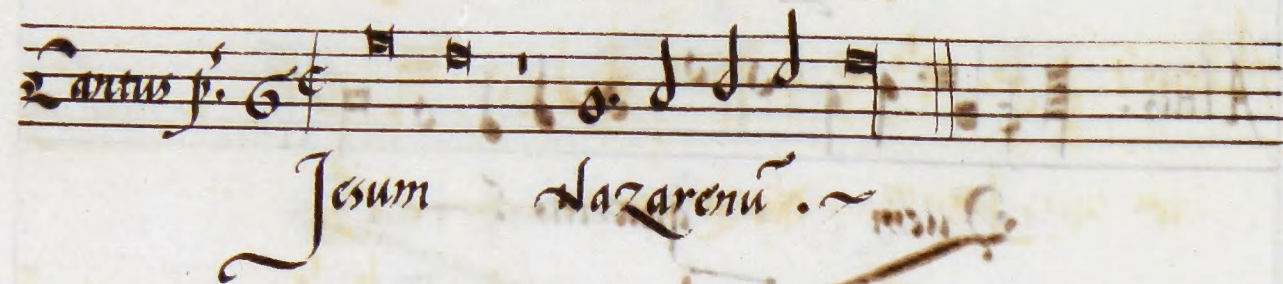 Cantus p.
Jesum Nazarenū .~